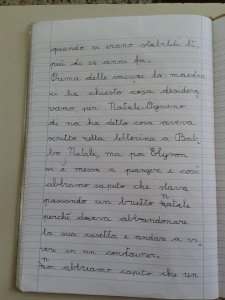 quando si erano stabiliti lì,
più di 20 anni fa.
Prima delle vacanze la maestra
ci ha chiesto cosa desidera
vamo per Natale. Ognuno
di noi ha detto cosa aveva
scritto nella letterina a Bab
bo Natale, ma poi Elyson
si è messa a piangere e così
abbiamo saputo che stava
passando un brutto natale
perché doveva abbandonare
la sua casetta e andare a vi
vere in un container.
non abbiamo capito che un